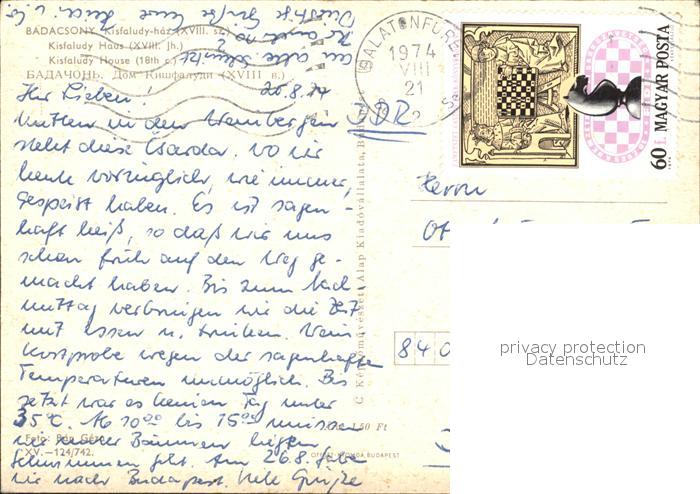 BADACSONY Kisfaludy-ház (XVIII. sz.)
Kisfaludy Haus (XVIII. Jh.)
Kisfaludy House (18th c.)
БАДАЧОНЬ. Дом Кишфалуди (XVIII в.)
BALATONFÜRED
1974
VIII
21
60 f. MAGYAR POSTA
20.8.74
Ihr Lieben!
DDR
Mitten in den Weinbergen
steht diese Csarda, wo wir
heute vorzüglich, wie immer,
gespeist haben. Es ist sagen-
haft heiß, so daß wir uns
schon früh auf den Weg ge-
macht haben. Bis zum Nach-
mittag verbringen wir die Zeit
mit essen u. trinken. Wein-
kostprobe wegen der sagenhaften
Temperaturen unmöglich. Bis
jetzt war es keinen Tag unter
35°C. Ab 10⁰⁰ bis 15⁰⁰ müssen
wir unter Bäumen liegen
schwimmen geht. Am 26.8.
wir nach Budapest. Viele Grüße
an alle
Grüße
Herrn
Ot
840
C Képzőművészeti Alap Kiadóvállalata, Budapest
Ára: 1,50 Ft
Foto: Bán Géza
XV.—124/742.
OFFSET-NYOMDA, BUDAPEST
privacy protection
Datenschutz